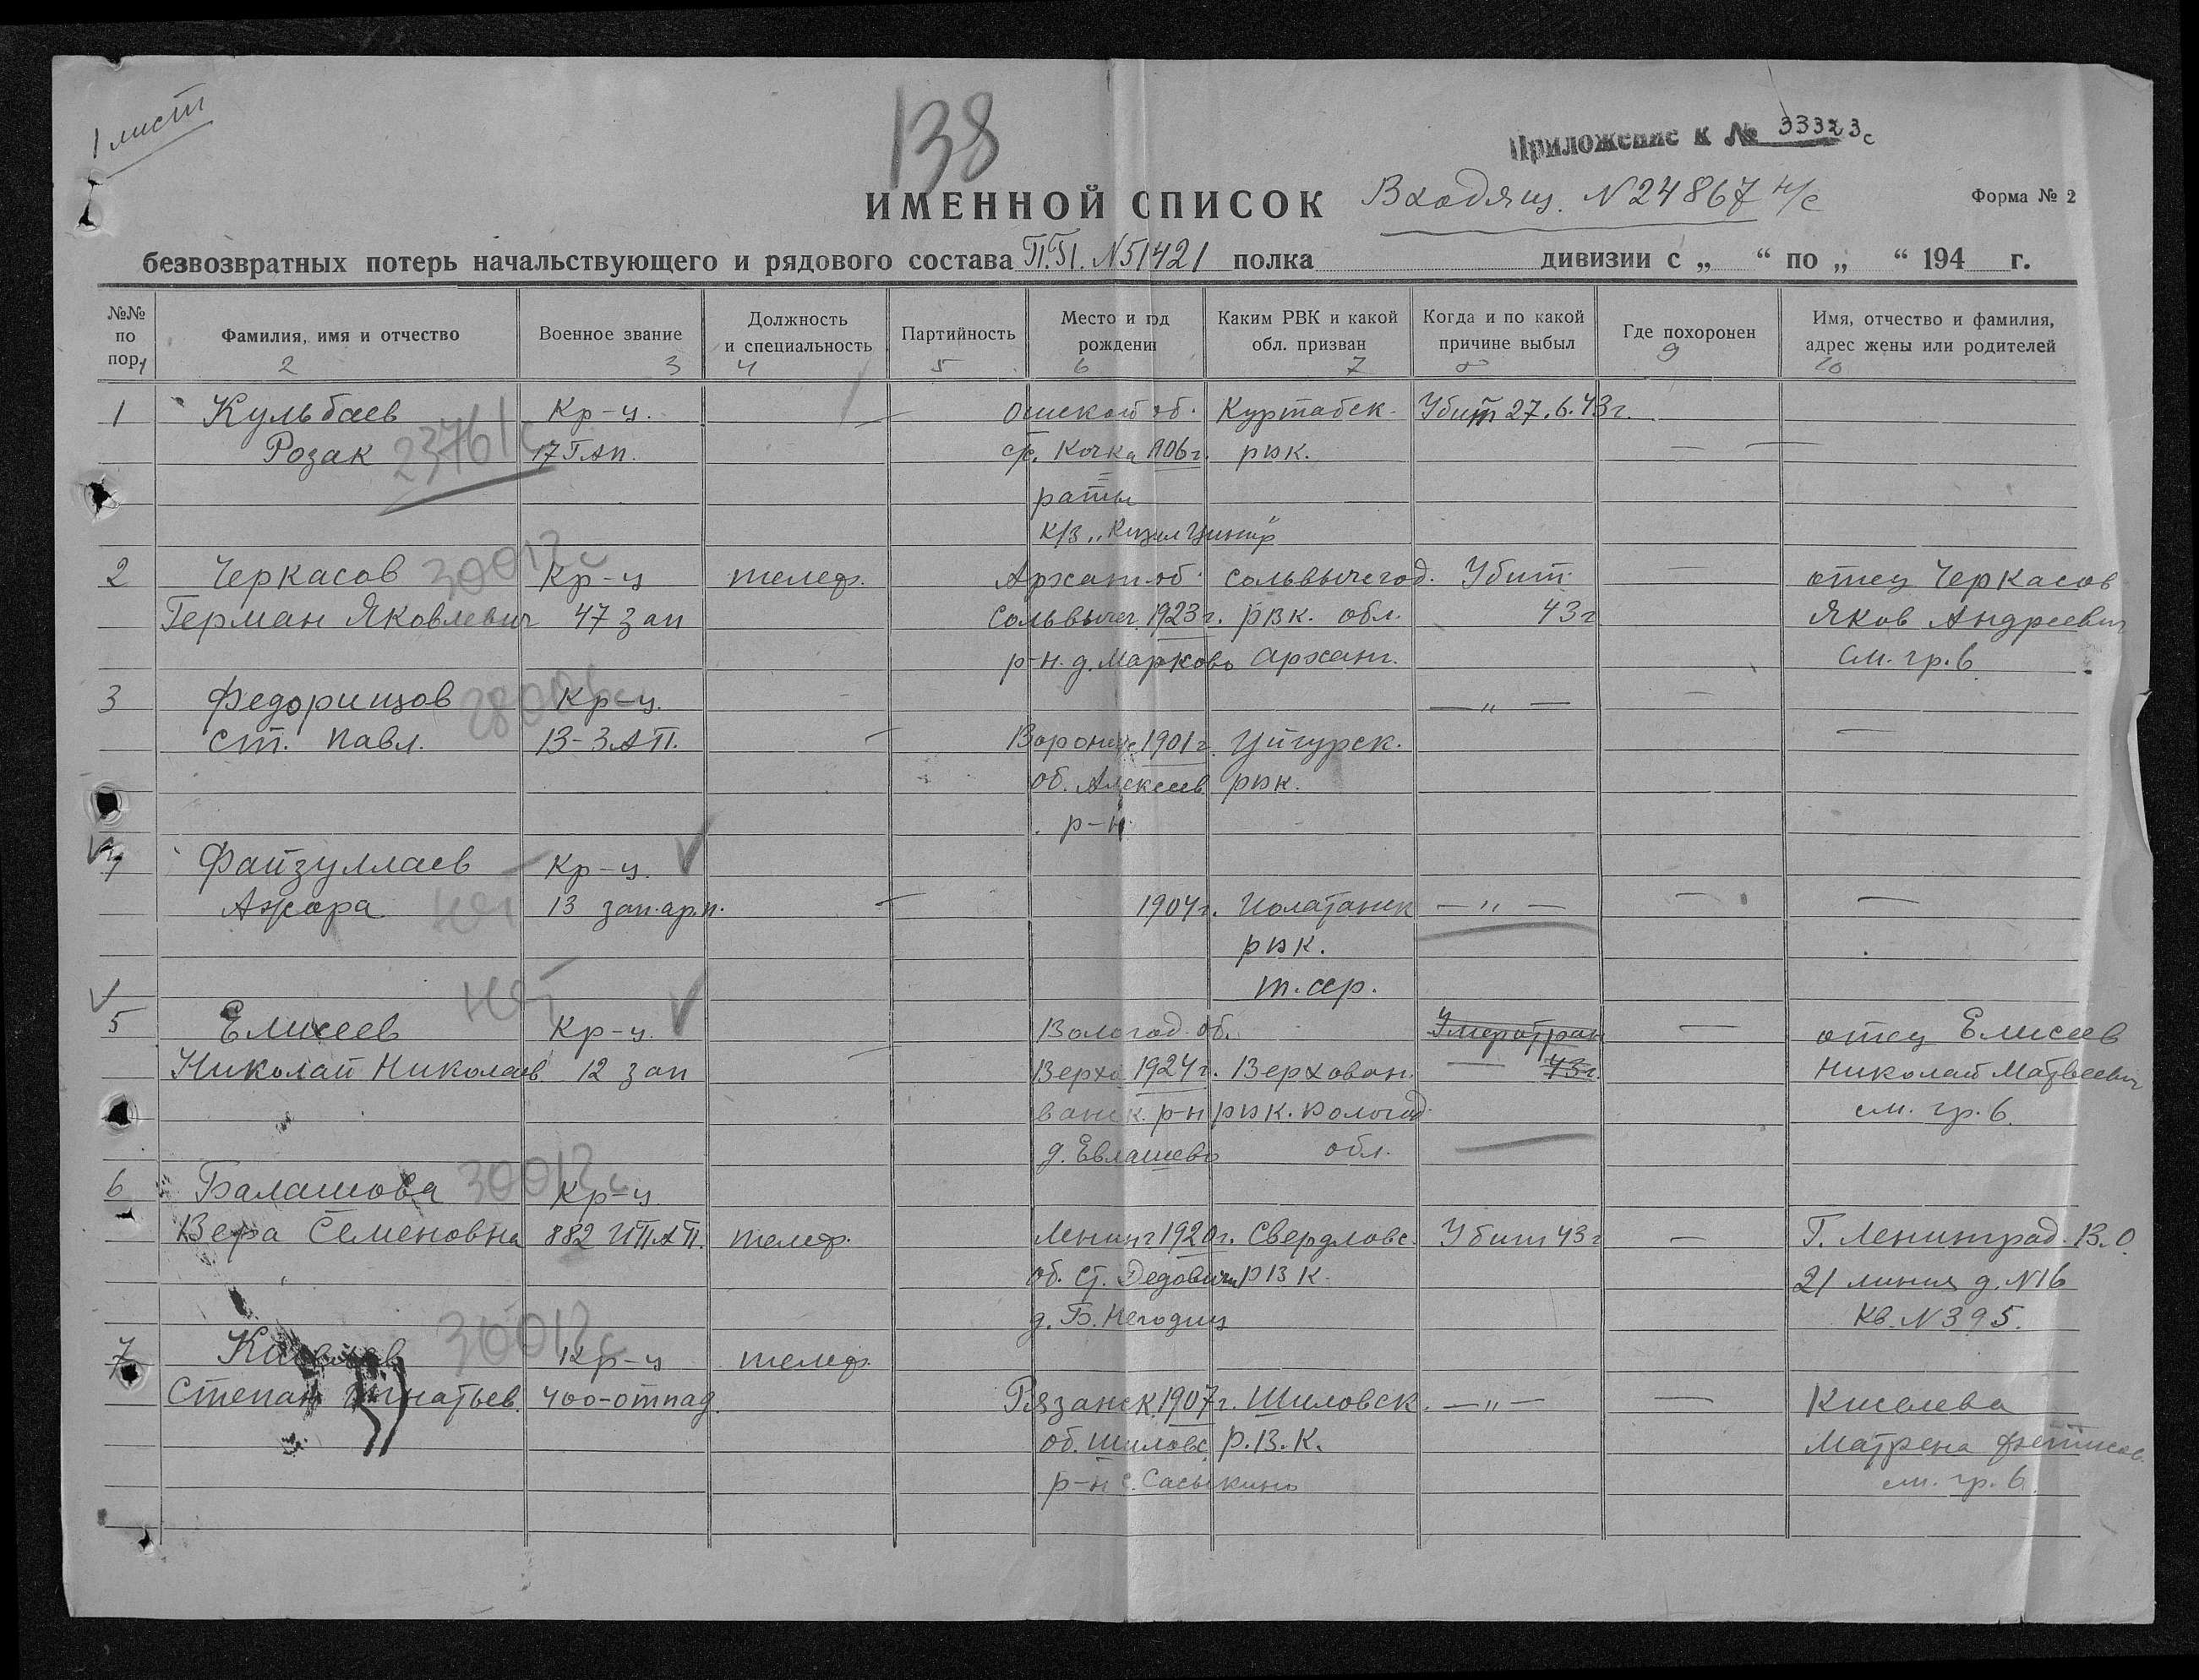 1 лист
138
Приложение к № 33323с
ИМЕННОЙ СПИСОК
Входящ. N24867 н/с
Форма № 2
безвозвратных потерь начальствующего и рядового состава П.П. N51421 полка дивизии с „ “ по „ “ 194 г.
№№ по пор. Фамилия, имя и отчество Военное звание Должность и специальность Партийность Место и год рождения Каким РВК и какой обл. призван Когда и по какой причине выбыл Где похоронен Имя, отчество и фамилия, адрес жены или родителей
1 2 3 4 5 6 7 8 9 10
1 Кульбаев Кр-ц. — Ошской об. Куртабек. Убит 27.6.43г.
Розак 23761с 17 ГАП. с/с. Кочка 906г. рвк. — —
раты
к/з „Кизил
2 Черкасов 30012с Кр-ц телеф. Архан. об. Сольвычегод. Убит — отец Черкасов
Герман Яковлевич 47 зап Сольвычег. 1923г. рвк. обл. 43г Яков Андреевич
р-н. д. Марково Арханг. см. гр. 6
3 Федорищов Кр-ц. — " — —
ст. Павл. 13-ЗАП. — Воронеж. 1901г. Уйгурск. —
об. Алексеев. рвк.
р-н.
4 Файзуллаев Кр-ц.
Ажора нет 13 зап.ар.п. — 1904г. Иолатанск — " — — —
рвк.
т.сср.
нет
5 Елисеев Кр-ц. Вологод. об. Умер от ран — отец Елисеев
Николай Николаев. 12 зап — Верхо 1924г. Верхован. 43г. Николай Матвеевич
ванск. р-н рвк. Вологод. см. гр. 6.
д. Евлашево обл.
6 Балашова 30012с Кр-ц
Вера Семеновна 882 ИПТАП. телеф. Ленинг 1920г. Свердловс. Убит 43г — Г. Ленинград. В.О.
об. ст. Дедовичи РВК. 21 линия д. N16
д. Б. Негодиц кв. N395.
7 30012с Кр-ц телеф.
Степан Игнатьев. 400-отпад. Рязанск. 1907г. Шиловск. — " — — Киселева
об. Шиловс Р.В.К. Матрена
р-н с. Сасыкино см. гр. 6.